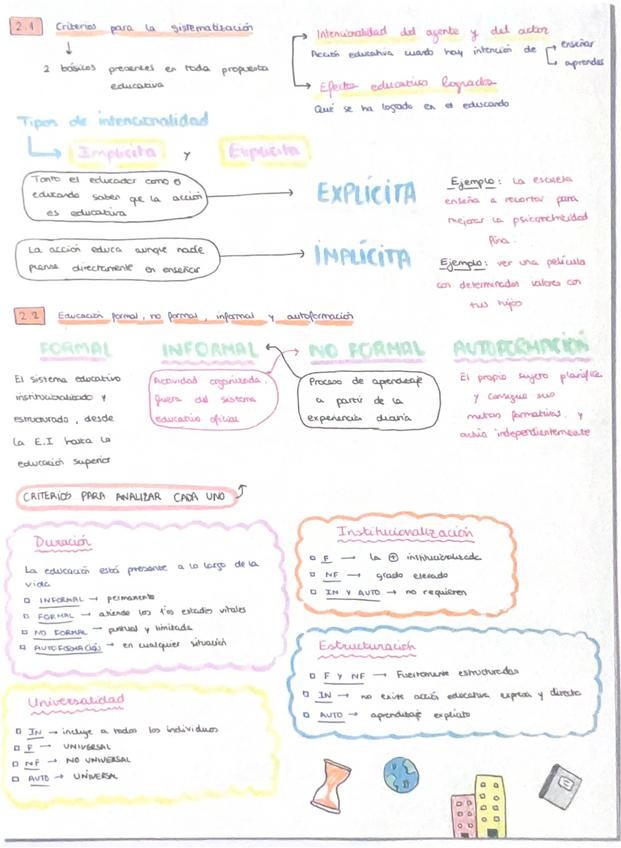 2.1 Criterios para la sistematización
2 básicos presentes en toda propuesta
educativa
Intencionalidad del agente y del actor
Acción educativa cuando hay intención de
enseñar
aprender
Efectos educativos logrados
Qué se ha logrado en el educando
Tipos de intencionalidad
Implícita y Explícita
Tanto el educador como el
educando saben que la acción
es educativa
EXPLÍCITA
Ejemplo: La escuela
enseña a recortar para
mejorar la psicomotricidad
fina.
La acción educa aunque nadie
piense directamente en enseñar
INPLÍCITA
Ejemplo: ver una película
con determinados valores con
tus hijos
2.2 Educación formal, no formal, informal y autoformación
FORMAL
El sistema educativo
institucionalizado y
estructurado, desde
la E.I hasta la
educación superior
INFORMAL
Actividad organizada,
fuera del sistema
educativo oficial
NO FORMAL
Proceso de aprendizaje
a partir de la
experiencia diaria
AUTOFORMACIÓN
El propio sujeto planifica
y consigue sus
metas formativas y
actúa independientemente
CRITERIOS PARA ANALIZAR CADA UNO
Duración
La educación está presente a lo largo de la
vida
INFORMAL → permanente
FORMAL → atiende los 1os estadios vitales
NO FORMAL → puntual y limitada
AUTOFORMACIÓN → en cualquier situación
Institucionalización
F → la + institucionalizada
NF → grado elevado
IN Y AUTO → no requieren
Estructuración
F Y NF → Fuertemente estructuradas
IN → no existe acción educativa expresa y directa
AUTO → aprendizaje explícito
Universalidad
IN → incluye a todos los individuos
F → UNIVERSAL
NF → NO UNIVERSAL
AUTO → UNIVERSAL